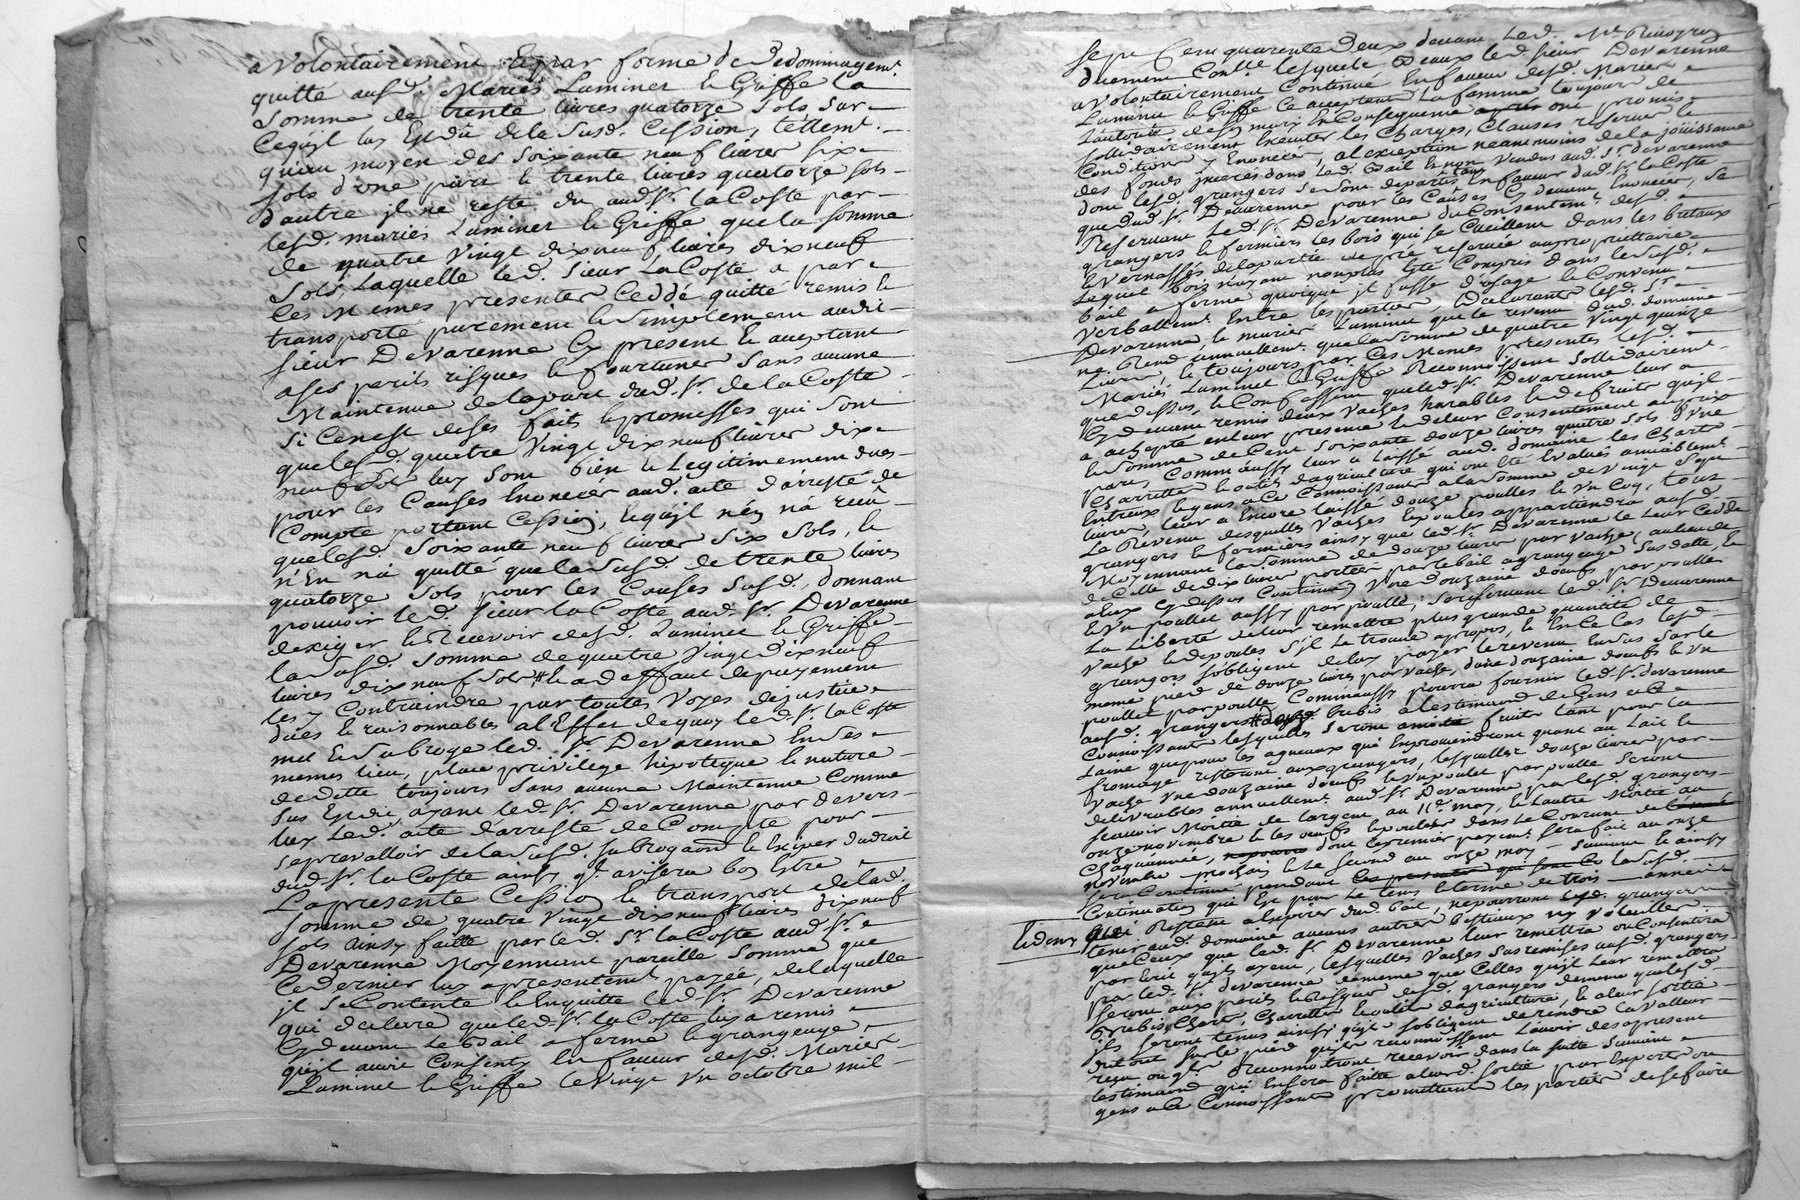 a volontairement et par forme de dedommagemt.
quitté ausd. Mariés Laminet et Griffe la
somme de trente livres quatorze sols sur
Ce qu'il luy est dû de la susd. Cession, tellemt.
qu'au moyen des soixante neuf livres six
sols d'une part et trente livres quatorze sols
d'autre il ne reste du aud. Sr. la Coste par
lesd. mariés Laminet et Griffe que la somme
de quatre vingt dix neuf livres dix neuf
sols, Laquelle led. Sieur La Coste a par
Ces Memes presentes Ceddé quitté remis et
transporte purement et simplement audit
sieur Devarenne Cy present et aceptant
a ses perils risques et fourtunes sans aucune
Maintenue de la part dud. Sr. de la Coste
si Ce n'est de ses faits et promesses qui sont
que lesd. quatre vingt dix neuf livres dix
neuf sols luy sont bien et Legitimement dues
pour les Causes Enoncées aud. acte d'arresté de
Compte portant Cession, et qu'il n'en n'a recû
que lesd. soixante neuf livres six sols, et
n'En n'a quitté que la susd. de trente livres
quatorze sols pour les Causes susd., donnant
pouvoir led. sieur la Coste aud. Sr. Devarenne
d'exiger et Recevoir desd. Laminet et Griffe
la susd. somme de quatre vingt dix neuf
livres dix neuf sols et a deffaut de payement
les y Contraindre par toutes Voyes de justice
dues et raisonnables a l'Effet de quoy led. Sr. la Coste
met et subroge led. Sr. Devarenne En ses
memes lieu, place privilege hipoteque et nature
de dette toujours sans aucune Maintenue Comme
sus Est dit, ayant led. Sr. Devarenne par devers
luy Led. acte d'arresté de Compte pour
se prevalloir de la susd. subrogaon et Exiper du droit
dud. Sr. la Coste ainsy qt. avisera bon Estre
La presente Cession et transport de lad.
somme de quatre vingt dix neuf livres dix neuf
sols ainsy faitte par led. Sr. la Coste aud. Sr.
Devarenne Moyennant pareille somme que
Ce dernier luy a presentemt. payée, de laquelle
il se Contente et En quitte led. Sr. Devarenne
qui declare que led. Sr. la Coste luy a remis
Cy devant Le Bail a ferme et grangeage
qu'il avoit Consenty En faveur desd. Mariés
Laminet et Griffe le vingt un octobre mil
sept Cent quarente Deux devant Led. Me.
duement Contllé lesquels Beaux led. sieur Devarenne
a volontairement Continué En faveur desd. Mariés
Laminet et Griffe Ce aceptant La femme toujours de
L'autorité de sd. mary En Consequence ont promis
sollidairement Executer les Charges, Clauses reserves et
Conditions y Enoncées, a l'exception neanmoins de la joüissance
des fonds inserés dans led. Bail et non vendus aud. Sr. devarenne
dont lesd. grangers se sont departis tant En faveur dud. Sr. la Coste
que dud. Sr. Devarenne pour les Causes Cy devant Enoncées, se
Reservant Led. Sr. Devarenne du Consentemt. desd.
grangers et fermiers les bois qui se Cueillent dans les brotaux
et vernasses de la partie de pré reservée au proprietaire
Lequel bois n'ayant non plus Eté Compris dans le susd.
bail a ferme quoique il fusse d'usage et Convenu
verballemt. Entre les parties Declarants Lesd. Sr.
Devarenne, et mariés Laminet que le revenu dud. domaine
ne Rend annuellemt. que la somme de quatre vingt quinze
Livres, et toujours par Ces Memes presentes lesd.
Mariés Laminet et Griffe Reconnoissent sollidairemt.
que dessus, et Confessent que led. Sr. Devarenne leur a
Cy devant remis deux vaches harables et de fruits qu'il
a achepté en leur presence et de leur Consentement au prix
et somme de Cent soixante douze livres quatre sols d'une
part, Comm'aussy leur a laissé aud. domaine les Charts
Charrettes et outils d'agriculture qui ont été Evalués amiablemt.
Entreux et gens a Ce Connoissants a la somme de vingt sept
livres, leur a Encore laissé douze poulles et un Coq, tout
Le Revenu desquelles vaches et poules appartiendra ausd.
grangers et fermiers ainsy que led. Sr. Devarenne le leur Cedde
Moyennant la somme de douze livres par vache, au lieu de
Celle de dix livres portées par le bail a grangeage sus datté, En
Cy dessus Continué Une douzaine d'oeufs par poulle
et un poullet aussy par poulle; se reservant led. Sr. Devarenne
La Liberté de leur remettre plus grande quantité de
vaches et de poules s'il le trouve apropos, et En Ce Cas lesd.
grangers s'obligent de luy payer le revenu En sus sur le
meme pied de douze livres par vache, d'une douzaine d'oeufs et un
poullet par poulle Comm'aussy pourra fournir led. Sr. devarenne
ausd. grangers brebis a l'estimaon de Gens a Ce
Connoissant lesquelles seront fruits tant pour la
Laine que pour les agneaux qui En proviendront quant au Lait et
fromage resteront aux grangers, lesquelles douze livres par
vache Une douzaine d'oeufs et un poulet par poulle seront
delivrables annuellemt. aud. Sr. Devarenne par lesd. grangers
scavoir Moitié de l'argent au 11e. may, et l'autre Moitié au
onze novembre et les oeufs et poulets dans le Courant de
Chaqu'année, dont le premier payemt. sera fait au onze
novembre prochain et le second au onze may suivant et ainsy
sera Continué pendant la susd.
Continuation qui Est pour le tems et terme de trois années
et deux qui Restent a Expirer dud. bail, ne pourront lesd. grangers
tenir aud. domaine aucuns autres bestiaux ny volailles
que Ceux que led. Sr. Devarenne leur remettra ou Consentira
par Ecrit qu'ils ayent, lesquelles vaches sus remises ausd. grangers
par led. Sr. devarenne de meme que Celles qu'il leur remettra
seront aux perils et risques desd. grangers de meme que lesd.
Brebis, Charts, Charrettes et outils d'agriculture, et a leur sortie
ils seront tenus ainsy qu'ils s'obligent de rendre la valleur
du tout sur le pied qu'ils reconnoissent L'avoir des a present
reçu ou qu'ils Reconnoitront recevoir dans la suitte suivant
l'estimaon qui En sera faitte a leurd. sortie par Experts ou
gens a Ce Connoissants promettant les parties de se faire